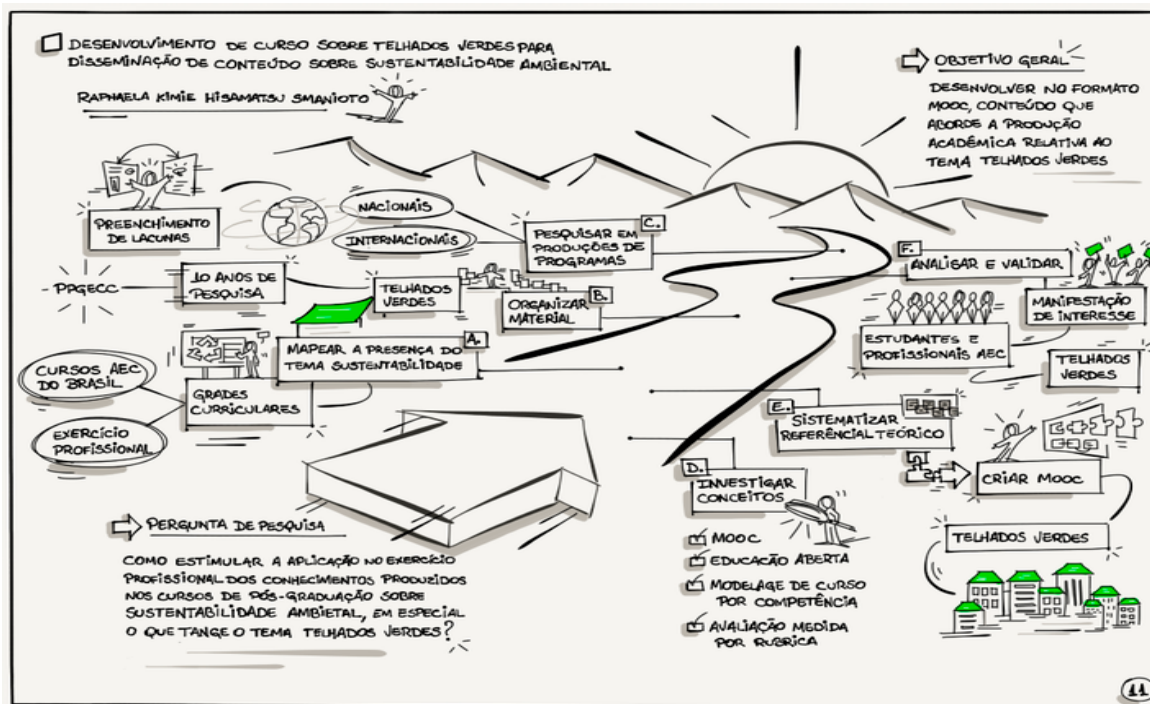 DESENVOLVIMENTO DE CURSO SOBRE TELHADOS VERDES PARA
DISSEMINAÇÃO DE CONTEÚDO SOBRE SUSTENTABILIDADE AMBIENTAL
RAPHAELA KIMIE HISAMATSU SMANIOTO
OBJETIVO GERAL
DESENVOLVER NO FORMATO
MOOC, CONTEÚDO QUE
ABORDE A PRODUÇÃO
ACADÊMICA RELATIVA AO
TEMA TELHADOS VERDES
PREENCHIMENTO
DE LACUNAS
NACIONAIS
INTERNACIONAIS
C.
PESQUISAR EM
PRODUÇÕES DE
PROGRAMAS
PPGECC
10 ANOS DE
PESQUISA
TELHADOS
VERDES
B.
ORGANIZAR
MATERIAL
A.
MAPEAR A PRESENÇA DO
TEMA SUSTENTABILIDADE
CURSOS AEC
DO BRASIL
EXERCÍCIO
PROFISSIONAL
GRADES
CURRICULARES
F.
ANALISAR E VALIDAR
MANIFESTAÇÃO
DE INTERESSE
ESTUDANTES E
PROFISSIONAIS AEC
TELHADOS
VERDES
E.
SISTEMATIZAR
REFERÊNCIAL TEÓRICO
CRIAR MOOC
TELHADOS VERDES
D.
INVESTIGAR
CONCEITOS
MOOC
EDUCAÇÃO ABERTA
MODELAGE DE CURSO
POR COMPETÊNCIA
AVALIAÇÃO MEDIDA
POR RUBRICA
PERGUNTA DE PESQUISA
COMO ESTIMULAR A APLICAÇÃO NO EXERCÍCIO
PROFISSIONAL DOS CONHECIMENTOS PRODUZIDOS
NOS CURSOS DE PÓS-GRADUAÇÃO SOBRE
SUSTENTABILIDADE AMBIETAL, EM ESPECIAL
O QUE TANGE O TEMA TELHADOS VERDES?
11